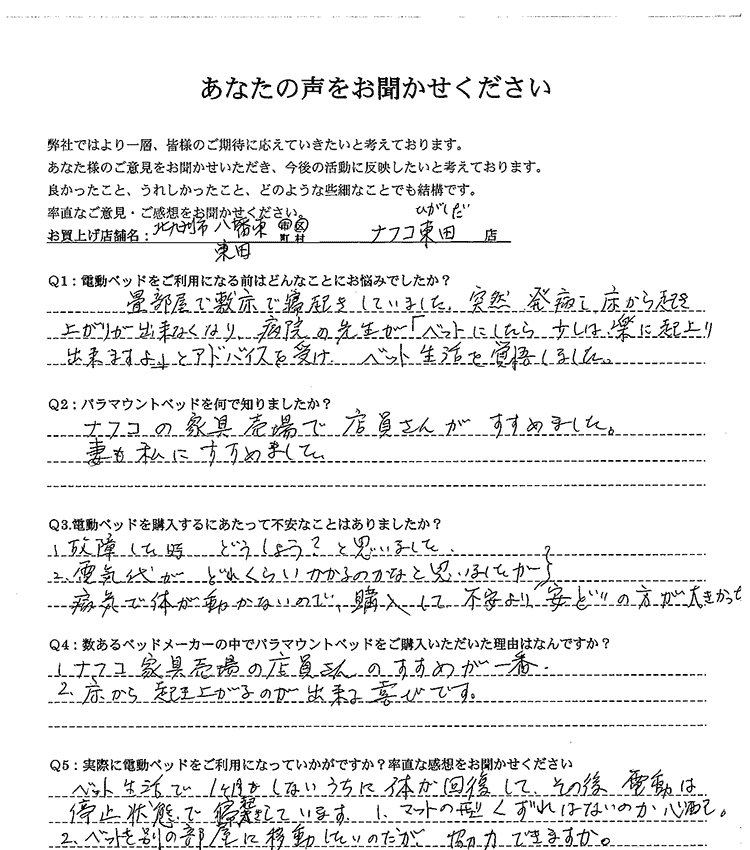 あなたの声をお聞かせください
弊社ではより一層、皆様のご期待に応えていきたいと考えております。
あなた様のご意見をお聞かせいただき、今後の活動に反映したいと考えております。
良かったこと、うれしかったこと、どのような些細なことでも結構です。
率直なご意見・ご感想をお聞かせください。
ひがしだ
お買上げ店舗名： 北九州市 八幡東 市区町村 ナフコ東田 店
東田
Q1：電動ベッドをご利用になる前はどんなことにお悩みでしたか？
畳部屋で敷床で寝起きしていました。突然 発病して床から起き
上がりが出来なくなり、病院の先生が「ベットにしたら少しは楽に起上り
出来ますよ」とアドバイスを受け ベット生活を覚悟しました。
Q2：パラマウントベッドを何で知りましたか？
ナフコの家具売場で店員さんが すすめました。
妻も私にすすめました。
Q3.電動ベッドを購入するにあたって不安なことはありましたか？
1.故障した時 どうしよう？と思いました.
2.電気代が どれくらいかかるのかなと思いましたが
病気で体が動かないので、購入して 不安より"安ど"の方が大きかった
Q4：数あるベッドメーカーの中でパラマウントベッドをご購入いただいた理由はなんですか？
1.ナフコ家具売場の店員さんのすすめが一番.
2.床から起き上がるのが出来る喜びです。
Q5：実際に電動ベッドをご利用になっていかがですか？率直な感想をお聞かせください
ベット生活で 1ヶ月もしないうちに体が回復して、その後 電動は
停止状態で寝起きしています. 1.マットの型くずれはないのか心配。
2.ベットを別の部屋に移動したいのだが、協力できますか。